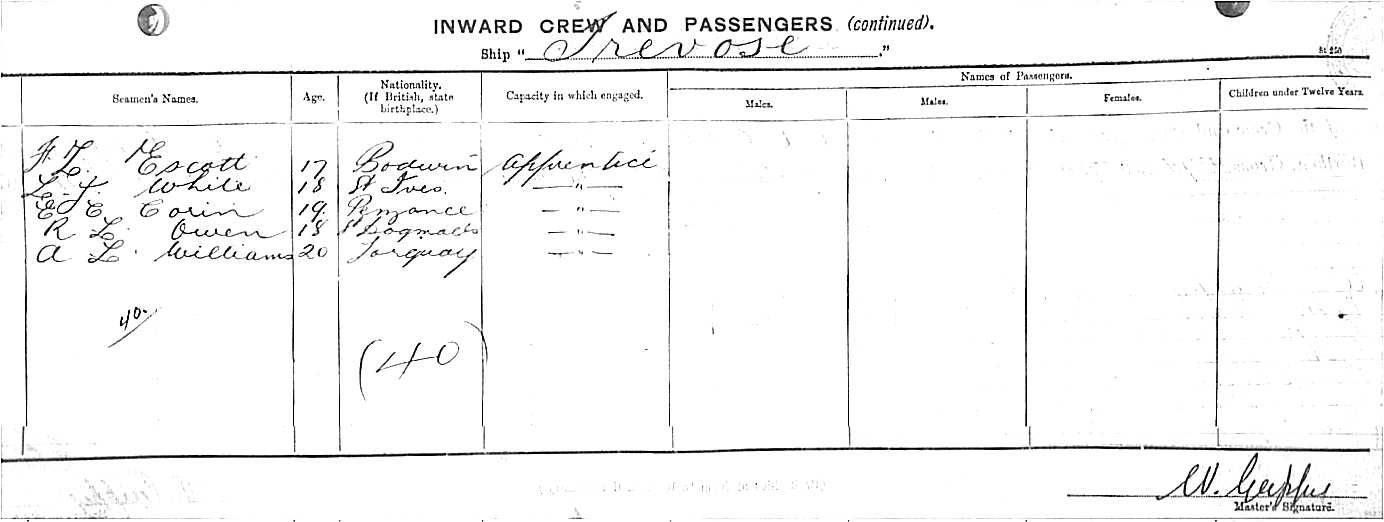 INWARD CREW AND PASSENGERS (continued).
Ship "Trevose."
St 250
Seamen's Names. Age. Nationality. (If British, state birthplace.) Capacity in which engaged. Names of Passengers.
Males. Males. Females. Children under Twelve Years.
F. L. Escott 17 Bodwin Apprentice
L. J. White 18 St Ives. — " —
E C Corin 19. Penzance — " —
R L. Owen 18 St — " —
A L. Williams 20 Torquay — " —
40.
(40)
W.
Master's Signature.